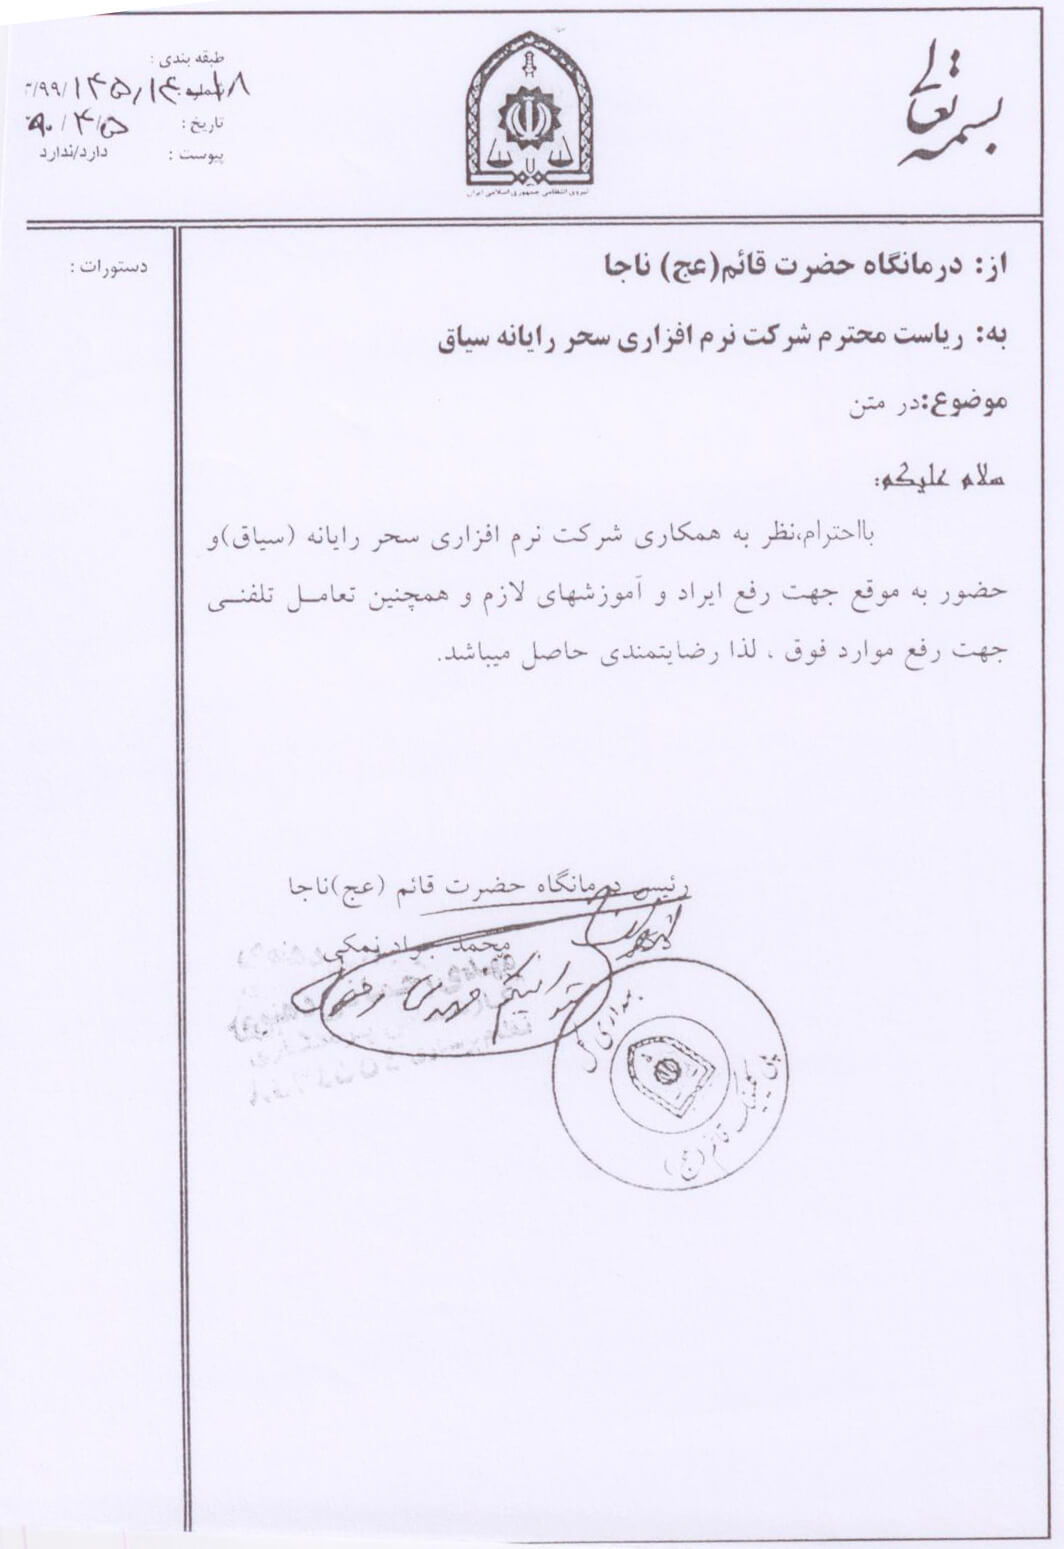 بسمه تعالی
طبقه بندی :
شماره:
تاریخ : ۹۰/۴/۵
پیوست : دارد/ندارد
نیروی انتظامی جمهوری اسلامی ایران
دستورات :
از: درمانگاه حضرت قائم(عج) ناجا
به: ریاست محترم شرکت نرم افزاری سحر رایانه سیاق
موضوع:در متن
سلام علیکم:
بااحترام،نظر به همکاری شرکت نرم افزاری سحر رایانه (سیاق)و
حضور به موقع جهت رفع ایراد و آموزشهای لازم و همچنین تعامل تلفنی
جهت رفع موارد فوق ، لذا رضایتمندی حاصل میباشد.
رئیس درمانگاه حضرت قائم (عج)ناجا
محمد جواد نمکی